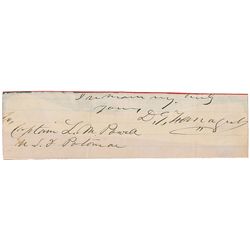 I remain my. truly
yours,
D. G. Farragut
Captain L. M. Powell
U. S. S. Potomac